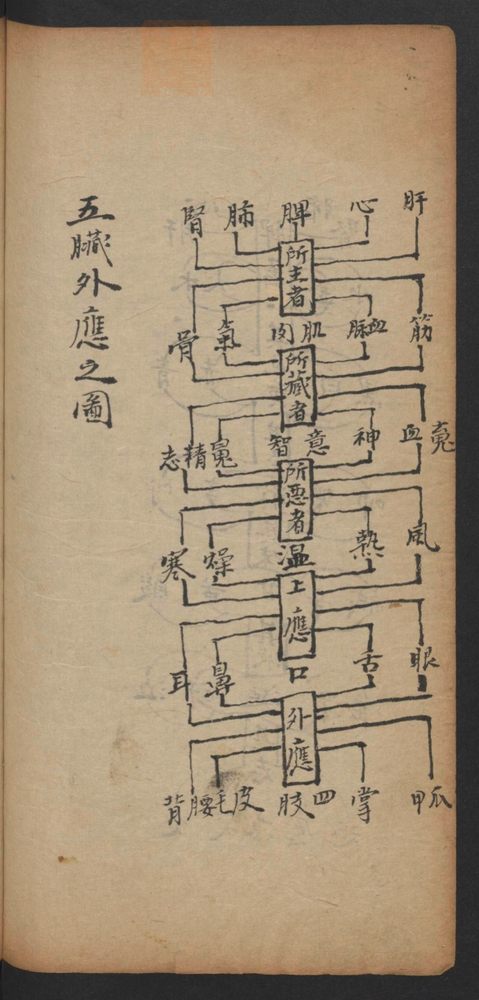 肝 心 脾 肺 腎
所主者
筋 血脉 肌肉 氣 骨
所藏者
魂血 神 意智 魄 精志
所惡者
風 熱 温 燥 寒
上應
眼 舌 口 鼻 耳
外應
爪甲 掌 四肢 皮毛 腰背
五臟外應之圖